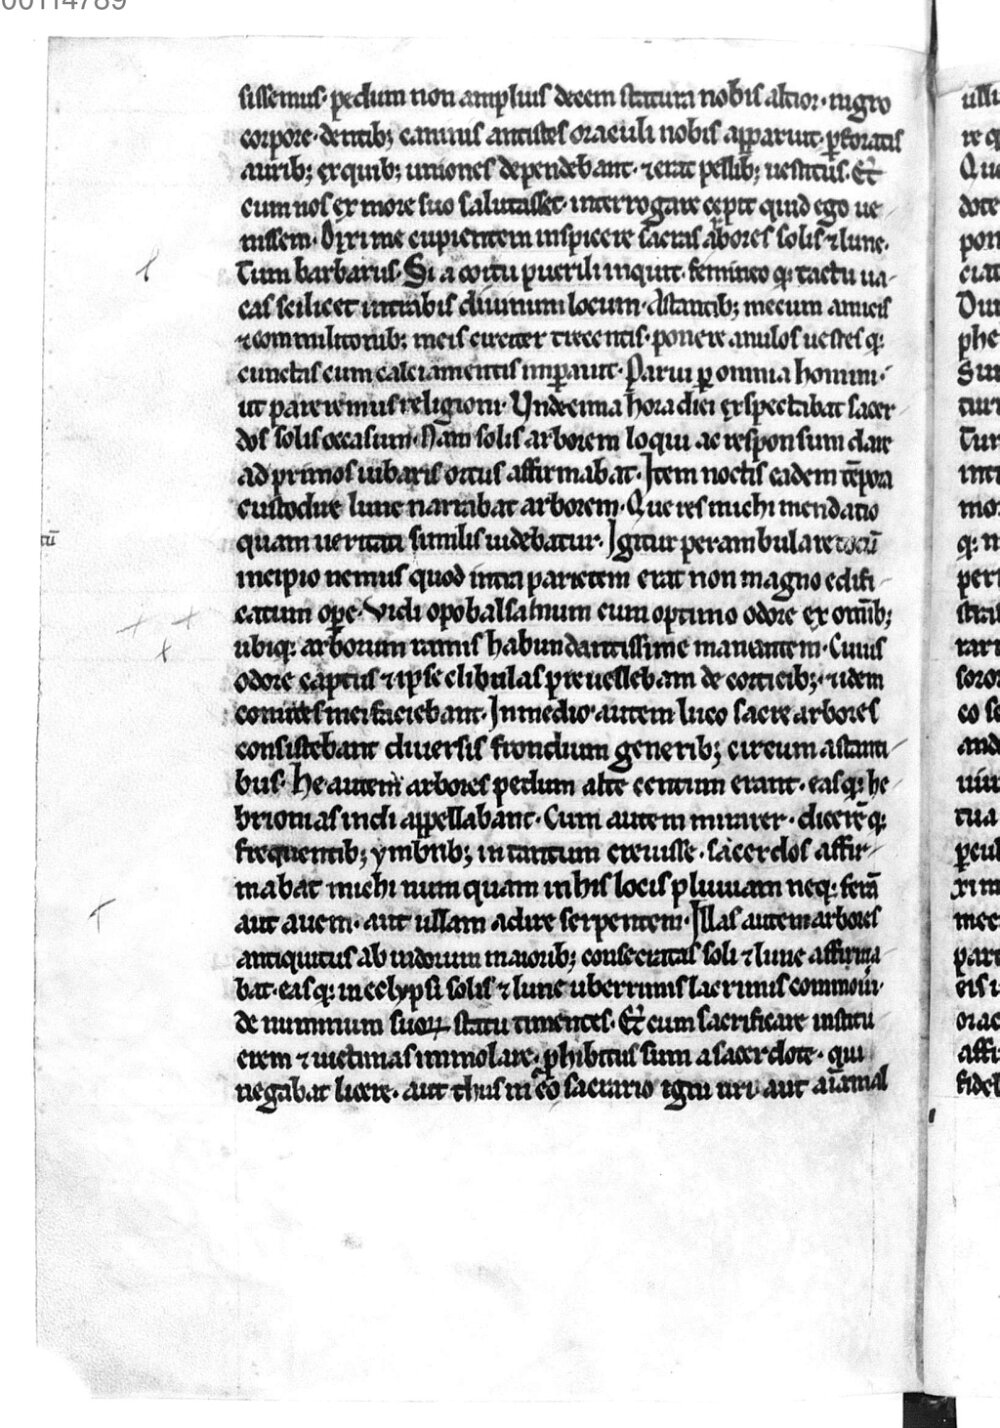 00114789
sissemus· pedum non amplius decem statura nobis altior· nigro
corpore· dentib; caninis antistes oraculi nobis apparuit· ꝑforatis
aurib; ex quib; uniones dependebant· ⁊erat pellib; uestitus· Et
cum nos ex more suo salutasset· interrogare cepit quid ego ue
nissem· Dixi me cupientem inspicere sacras arbores solis ⁊lune·
Tum barbarus· Si a coitu puerili inquit· femineo q: tactu ua-
cas scilicet intrabis diuinum locum· Astantib; mecum amicis
⁊commilitonib; meis circiter trecentis· ponere anulos uestes q:
cunctas cum calciamentis imꝑauit· Parui ꝑ omnia homini·
ut pareremus religioni· Undecima hora diei exspectabat sacer
dos solis occasum· Nam solis arborem loqui ac responsum dare
ad primos iubaris ortus affirmabat· Item noctis eadem tēpora
custodire lune narrabat arborem· Que res michi mendatio
quam ueritati similis uidebatur· Igitur perambulare totū
tū
incipio nemus quod intra parietem erat non magno edifi-
catum oꝑe· Vidi opobalsamum cum optimo odore ex omīb;
ubiq: arborum ramis habundantissime manantem· Cuius
odore captus ⁊ipse clibulas preuellebam de corticib; ⁊idem
comites mei faciebant· In medio autem luco sacre arbores
consistebant diuersis frondium generib; circum astanti-
bus· He autem arbores pedum alte centum erant· eas q: he-
brionas indi appellabant· Cum autem mirarer· dicerē q:
frequentib; ymbrib; in tantum creuisse· sacerdos affir-
mabat michi numquam in his locis pluuiam neq: ferā
aut auem· aut ullam adire serpentem· Illas autem arbores
antiquitus ab indorum maiorib; consecratas soli ⁊lune affirma
bat· eas q: in eclypsi solis ⁊ lune uberrimis lacrimis commoui·
de numinum suoꝝ statu timentes· Et cum sacrificare institu
erem ⁊ uictimas immolare· ꝓhibitus sum a sacerdote· qui
negabat licere· aut thus in eo sacrario igni uri aut aīamal